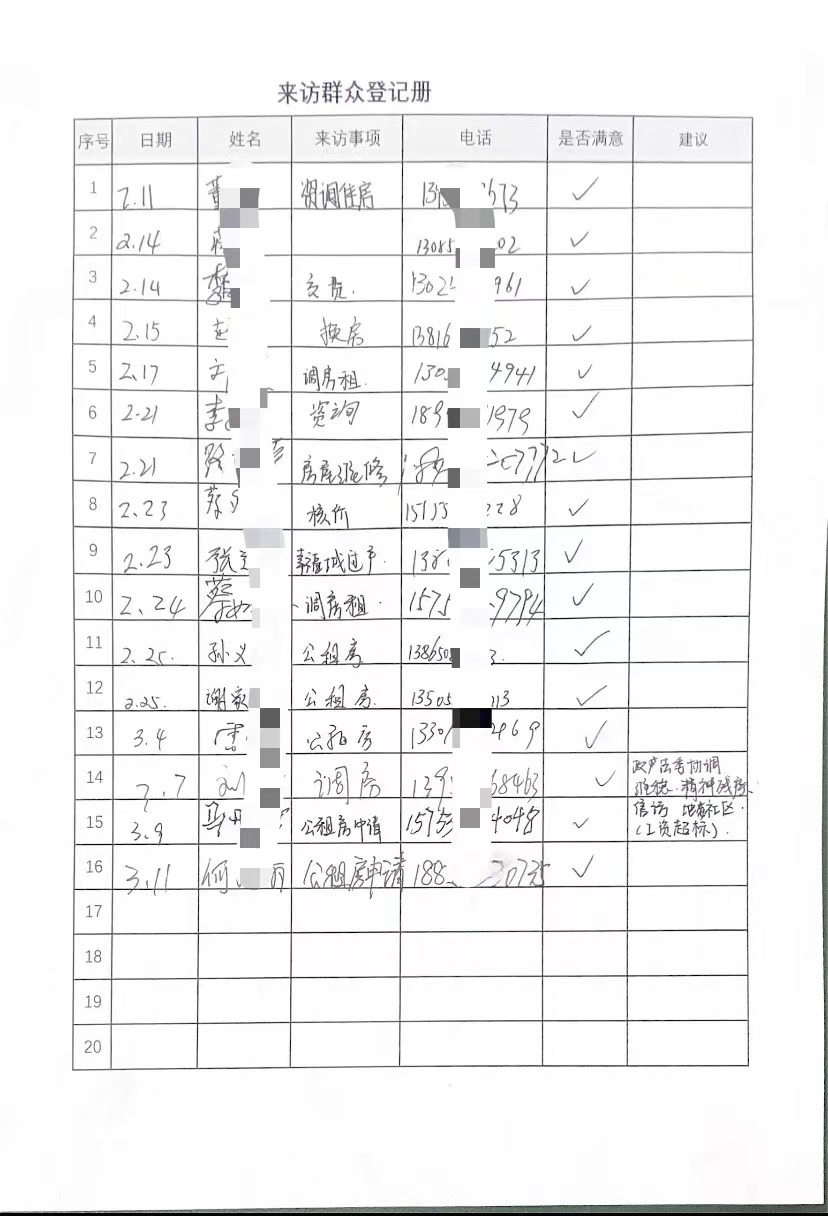 来访群众登记册
序号 日期 姓名 来访事项 电话 是否满意 建议
1 2.11 董 调住房 573 ✓
2 2.14 13085 02 ✓
3 2.14 交费. 1302 961 ✓
4 2.15 换房 13816 52 ✓
5 2.17 调房租. 130 4941 ✓
6 2-21 李 资询 189 1979 ✓
7 2.21 房屋维修 ✓
8 2.23 蔡 核价 15155 228 ✓
9 2.23 张 138 5313 ✓
10 2.24 蔡 调房租. 1575 9794 ✓
11 2.25. 孙义 公租房 138650 3. ✓
12 2.25. 谢家 公租房. 13505 13 ✓
13 3.4 公租房 1330 469 ✓
14 刘 调房 139 68463 ✓ 协调
精神残疾.
信访 社区.
(工资超标).
15 3.9 公租房申请 15755 4048 ✓
16 3.11 何 公租房申请 188 30735 ✓
17
18
19
20